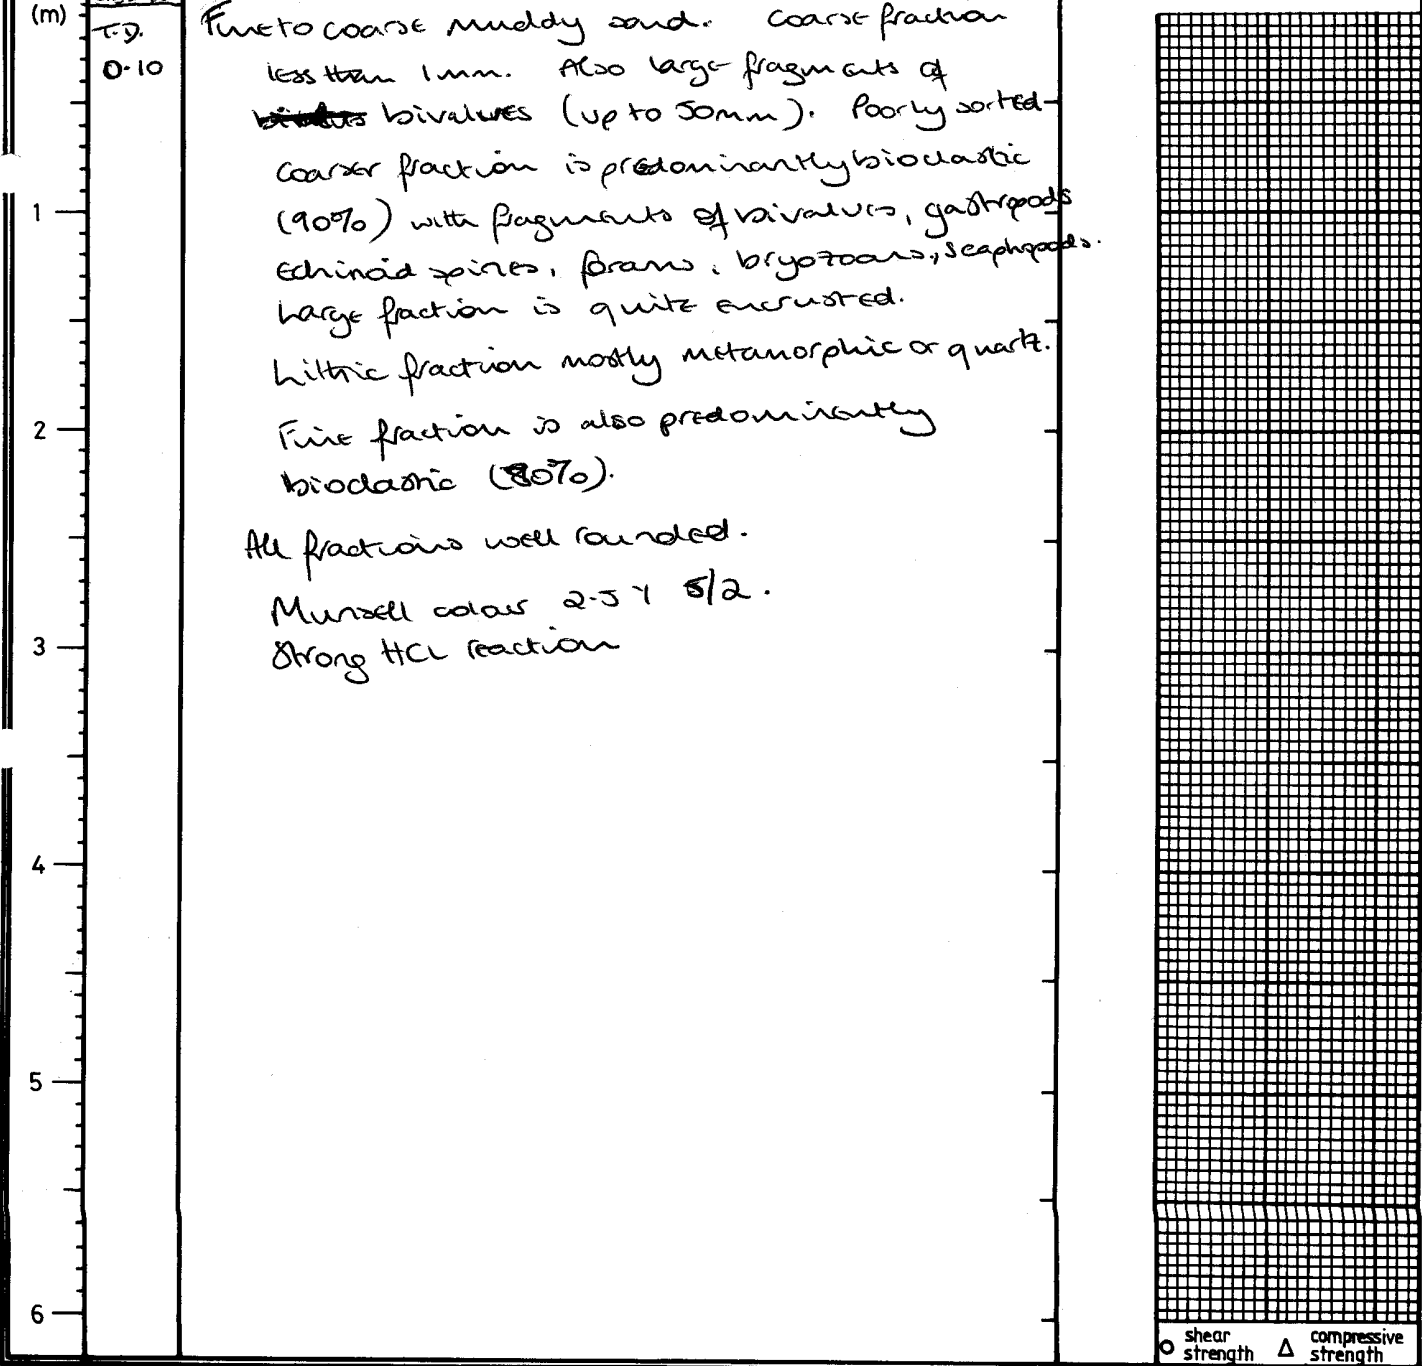 (m)
T.D.
0.10
Fine to coarse muddy sand. Coarse fraction
less than 1mm. Also large fragments of
bivalves (up to 50mm). Poorly sorted
coarser fraction is predominantly bioclastic
(90%) with fragments of bivalves, gastropods
Echinoid spines, forams, bryozoans, scaphopods.
Large fraction is quite encrusted.
Lithic fraction mostly metamorphic or quartz.
Fine fraction is also predominantly
bioclastic (80%).
All fractions well rounded.
Munsell colour 2.5 Y 5/2.
Strong HCL reaction
1
2
3
4
5
6
shear strength
compressive strength